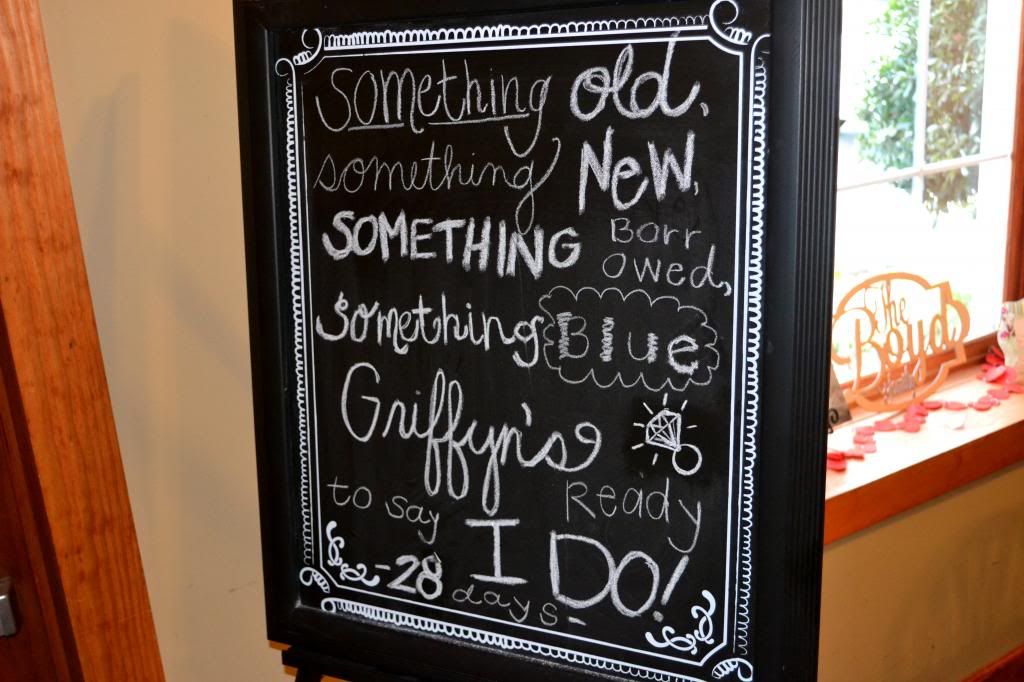 Something old,
something New,
SOMETHING Borr
owed,
something Blue
Griffyn's
Ready
to say I DO!
-28 days-
The
Boyd